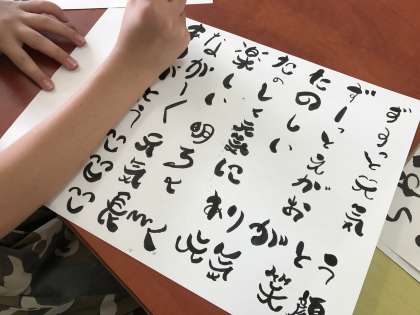 ずずっと元気
ずーっとえがお
たのしい
たのしく元気に
楽しい
明ると
ながーく
元気
ありがとう
笑顔
元気
長〜く